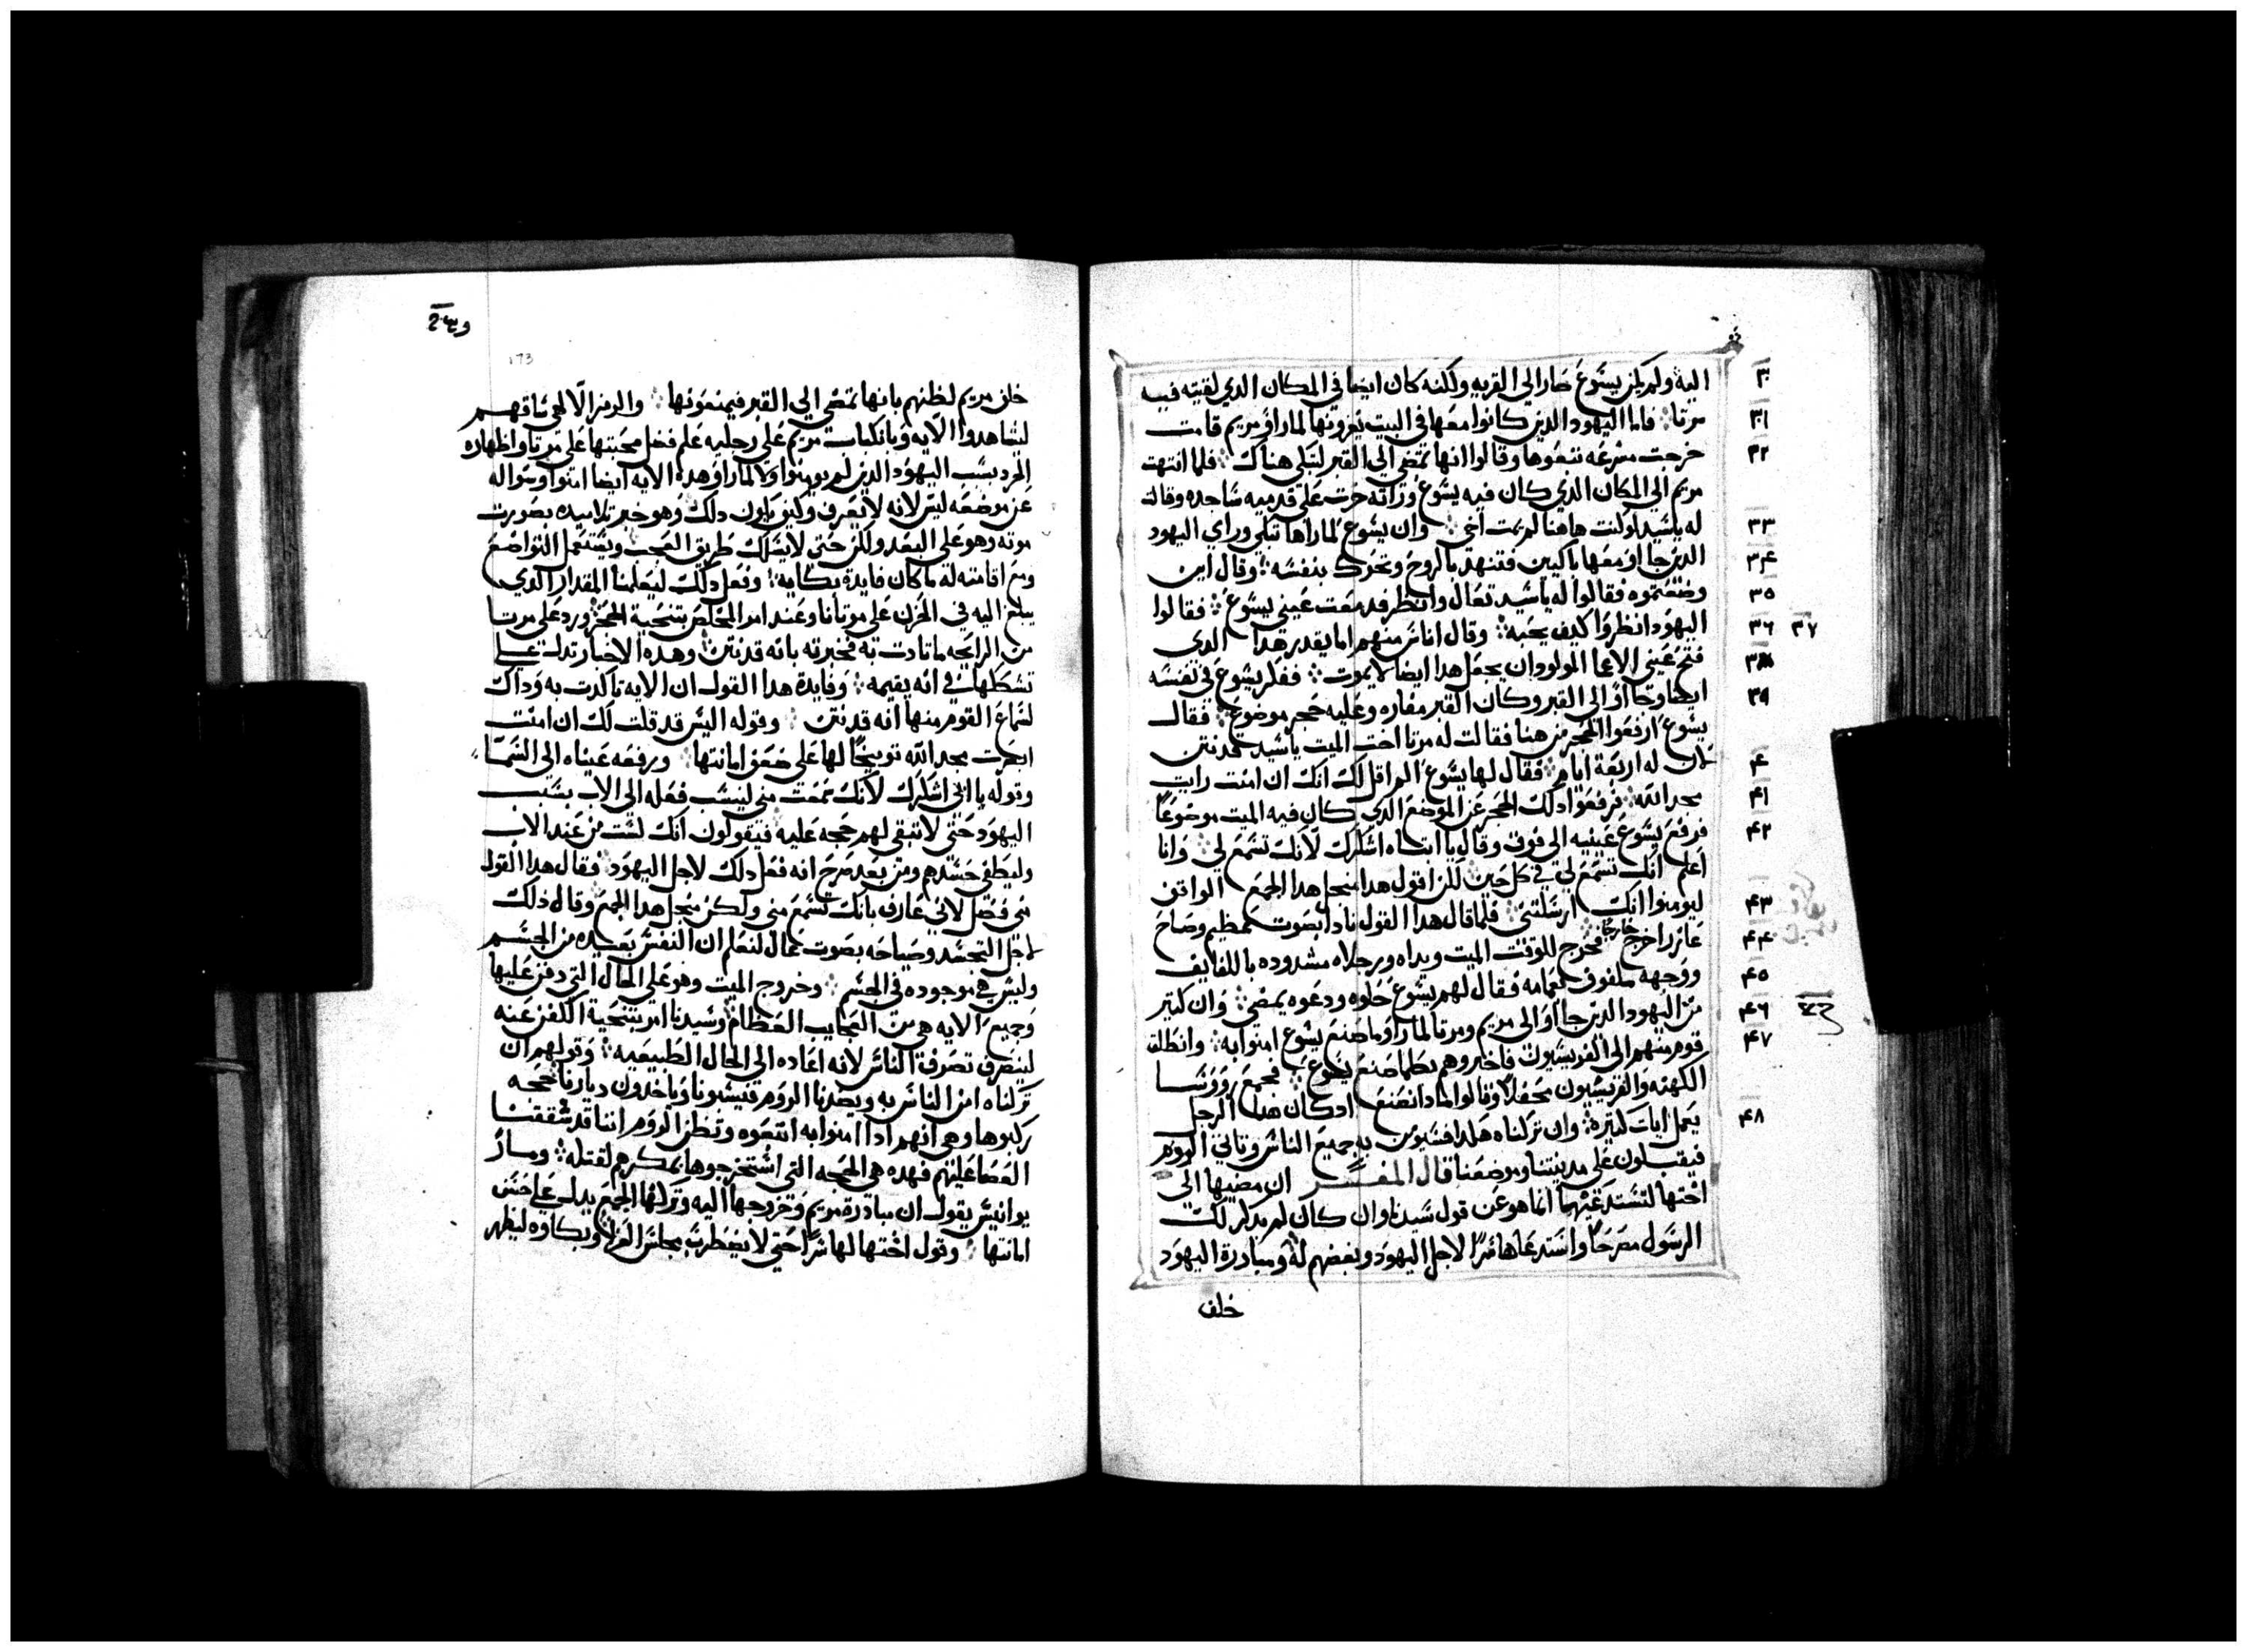 اليه ولم يكن يسوع صار الي القريه ولكنه كان ايضا في المكان الدي لقيته فيه
مرتا فاما اليهود الدين كانوا معها في البيت يعزونها لما راو مريم قامت
خرجت مسرعه تبعوها وقالوا انها تمضي الي القبر لتبكي هناك فلما انتهت
مريم الي المكان الدي كان فيه يسوع وراته خرت علي قدميه ساجده وقالت
له ياسيد لو كنت هاهنا لم يمت اخي وان يسوع لما راها تبكي وراي اليهود
الدين جااو معها باكيين فتنهد بالروح وتحرك بنفسه وقال اين
وضعتموه فقالوا له ياسيد تعال وانظر فدمعت عيني يسوع فقالوا
اليهود انظروا كيف يحبه وقال اناس منهم اما يقدر هدا الدي
فتح عيني الاعما المولود ان يجعل هدا ايضا لا يموت فقلر يسوع في نفسه
ايضا وجااو الي القبر وكان القبر مغاره وعليه حجر موضوع فقال
يسوع ارفعوا الحجر من هنا فقالت له مرتا اخت الميت ياسيد قد نتن
لان له اربعة ايام فقال لها يسوع الم اقل لك انك ان امنت رايت
مجد الله فرفعوا دلك الحجر عن الموضع الدي كان فيه الميت موضوعا
فرفع يسوع عينيه الي فوق وقال يا ابتاه اشكرك لانك تسمع لي وانا
اعلم انك تسمع لي في كل حين لكن اقول هدا منجل هدا الجمع الواقف
ليومنوا انك ارسلتني فلما قال هدا القول نادا بصوت عظيم وصاح
عازر اخرج خارجا فخرج للوقت الميت ويداه ورجلاه مشدوده باللفايف
ووجهه ملفوف بعمامه فقال لهم يسوع حلوه ودعوه يمضي وان كتير
من اليهود الدين جااو الي مريم ومرتا لما راو ما صنع يسوع امنوا به وانطلق
قوم منهم الي الفريسيون فاخبروهم بكلما صنع يسوع فجمع رووسا
الكهنه والفريسيون محفلا وقالوا مادا نصنع ادكان هدا الرجل
يعمل ايات كتيرة وان تركناه هكدا فسيومن به جميع الناس وتاتي الروم
فيقبلون علي مدينتنا وموضعنا قال المفسر ان مضيها الي
اختها لتستدعيها انما هو عن قول سيدنا وان كان لم يدكر لك
الرسول مصرحا واستدعاها سرا لاجل اليهود وبغضهم له ومبادرة اليهود
خلف
٣٠
٣١
٣٢
٣٣
٣٤
٣٥
٣٦ ٣٧
٣٨
٣٩
٤٠
٤١
٤٢
٤٣
٤٤
٤٥
٤٦
٤٧
٤٨
173
خلف مريم لظنهم بانها تمضي الي القبر فيمنعونها والرمز الالهي ساقهم
ليشاهدوا الايه وبانكباب مريم علي رجليه علم فضل محبتها علي مرتا واظهاره
الحرد بسبب اليهود الدين لم يومنوا ولا لما راو هده الايه ايضا امنوا وسواله
عن موضعه ليس لانه لا يعرف وكيف يكون دلك وهو خبر تلاميده بصورت
موته وهو علي البعد ولكن حتي لا يسلك طريق العجب ويستعمل التواضع
ومع اقامته له ما كان فايدة بكايه وفعل دلك ليعلمنا المقدار الدي
يبلغ اليه في الحزن علي موتانا وعند امر المخلص بتنحية الحجر ورد علي مرتا
من الرايحه ما تادت به فخبرته بانه قد نتن وهده الاخبار تدل علي
تشككها في انه يقيمه وفايدة هدا القول ان الايه تاكدت به وداك
لسماع القوم منها انه قد نتن وقوله اليس قد قلت لك ان امنت
ابصرت مجد الله توبيخا لها علي ضعف امانتها ورفعه عيناه الي السما
وقوله يا ابي اشكرك لانك سمعت مني ليس فعله الي الاب بسبب
اليهود حتي لا تبقي لهم حجه عليه فيقولون انك لست من عند الاب
وليطفي حسدهم ومن بعد صرح انه فعل دلك لاجل اليهود فقال هدا القول
مني فضل لاني عارف بانك تسمع مني ولكن منجل هدا الجمع وقال دلك
لاجل التجسد وصياحه بصوت عال لنعلم ان النفس بعيده من الجسم
وليس هي موجوده في الجسم وخروج الميت وهو علي الحال التي دفن عليها
وجميع الايه هي من العجايب العظام وسيدنا امر بتنحية الكفن عنه
ليتصرف تصرف الناس لانه اعاده الي الحال الطبيعيه وقولهم ان
تركناه امن الناس به ويصدنا الروم فيسبونا وياخدون ديارنا حجه
ركبوها وهي انهم ادا امنوا به اتبعوه وتظن الروم اننا قد شققنا
العصا عليهم فهده هي الحجه التي استخرجوها بمكرهم لقتله ومار
يوانيس يقول ان مبادرة مريم وخروجها اليه وتركها الجمع يدل علي حسن
امانتها وقول اختها لها سرا حتي لا يضطرب مجلس العزا وبكاوه ليظهر